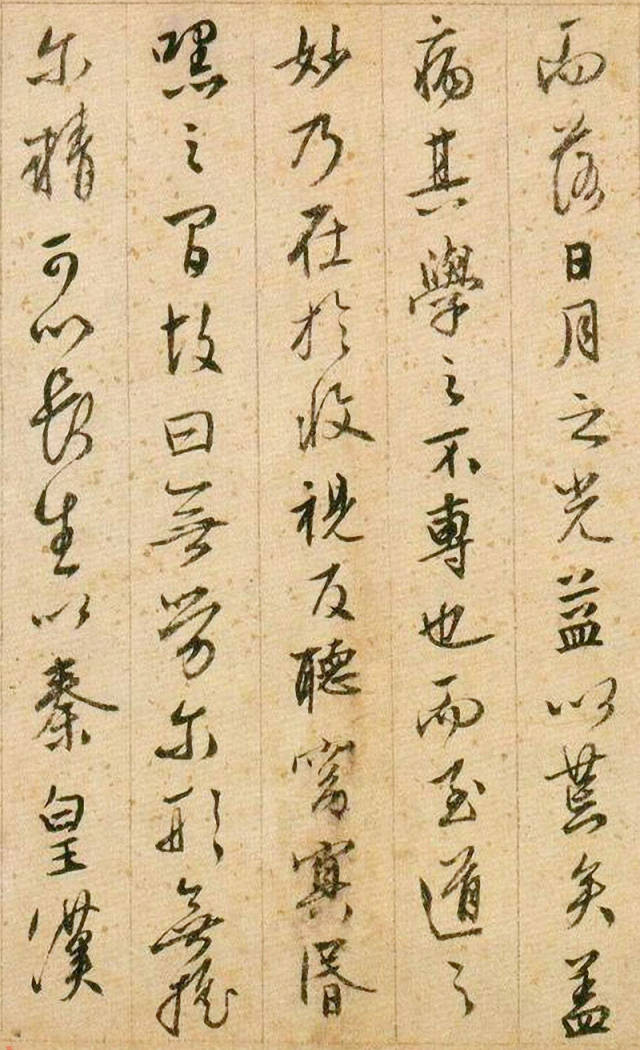 而落日月之光益以荒矣盖
病其學之不專也而至道之
妙乃在於收視反聽窈寞昬
嘿之間故曰無勞尔形無摇
尔精可以長生以秦皇漢